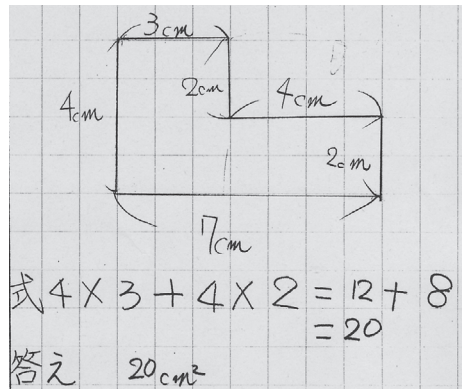 3cm
2cm
4cm
4cm
2cm
7cm
式 4×3+4×2=12+8
=20
答え 20cm²